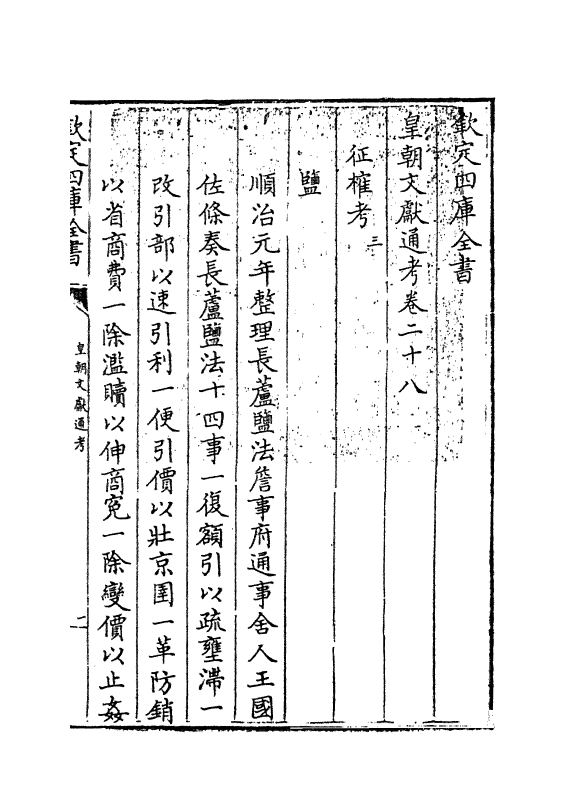 欽定四庫全書
皇朝文獻通考卷二十八
征榷考 三
鹽
順治元年整理長蘆鹽法詹事府通事舍人王國
佐條奏長蘆鹽法十四事一復額引以疏壅滯一
改引部以速引利一便引價以壯京圉一革防銷
以省商費一除濫贖以伸商寃一除變價以止姦
欽定四庫全書
皇朝文獻通考